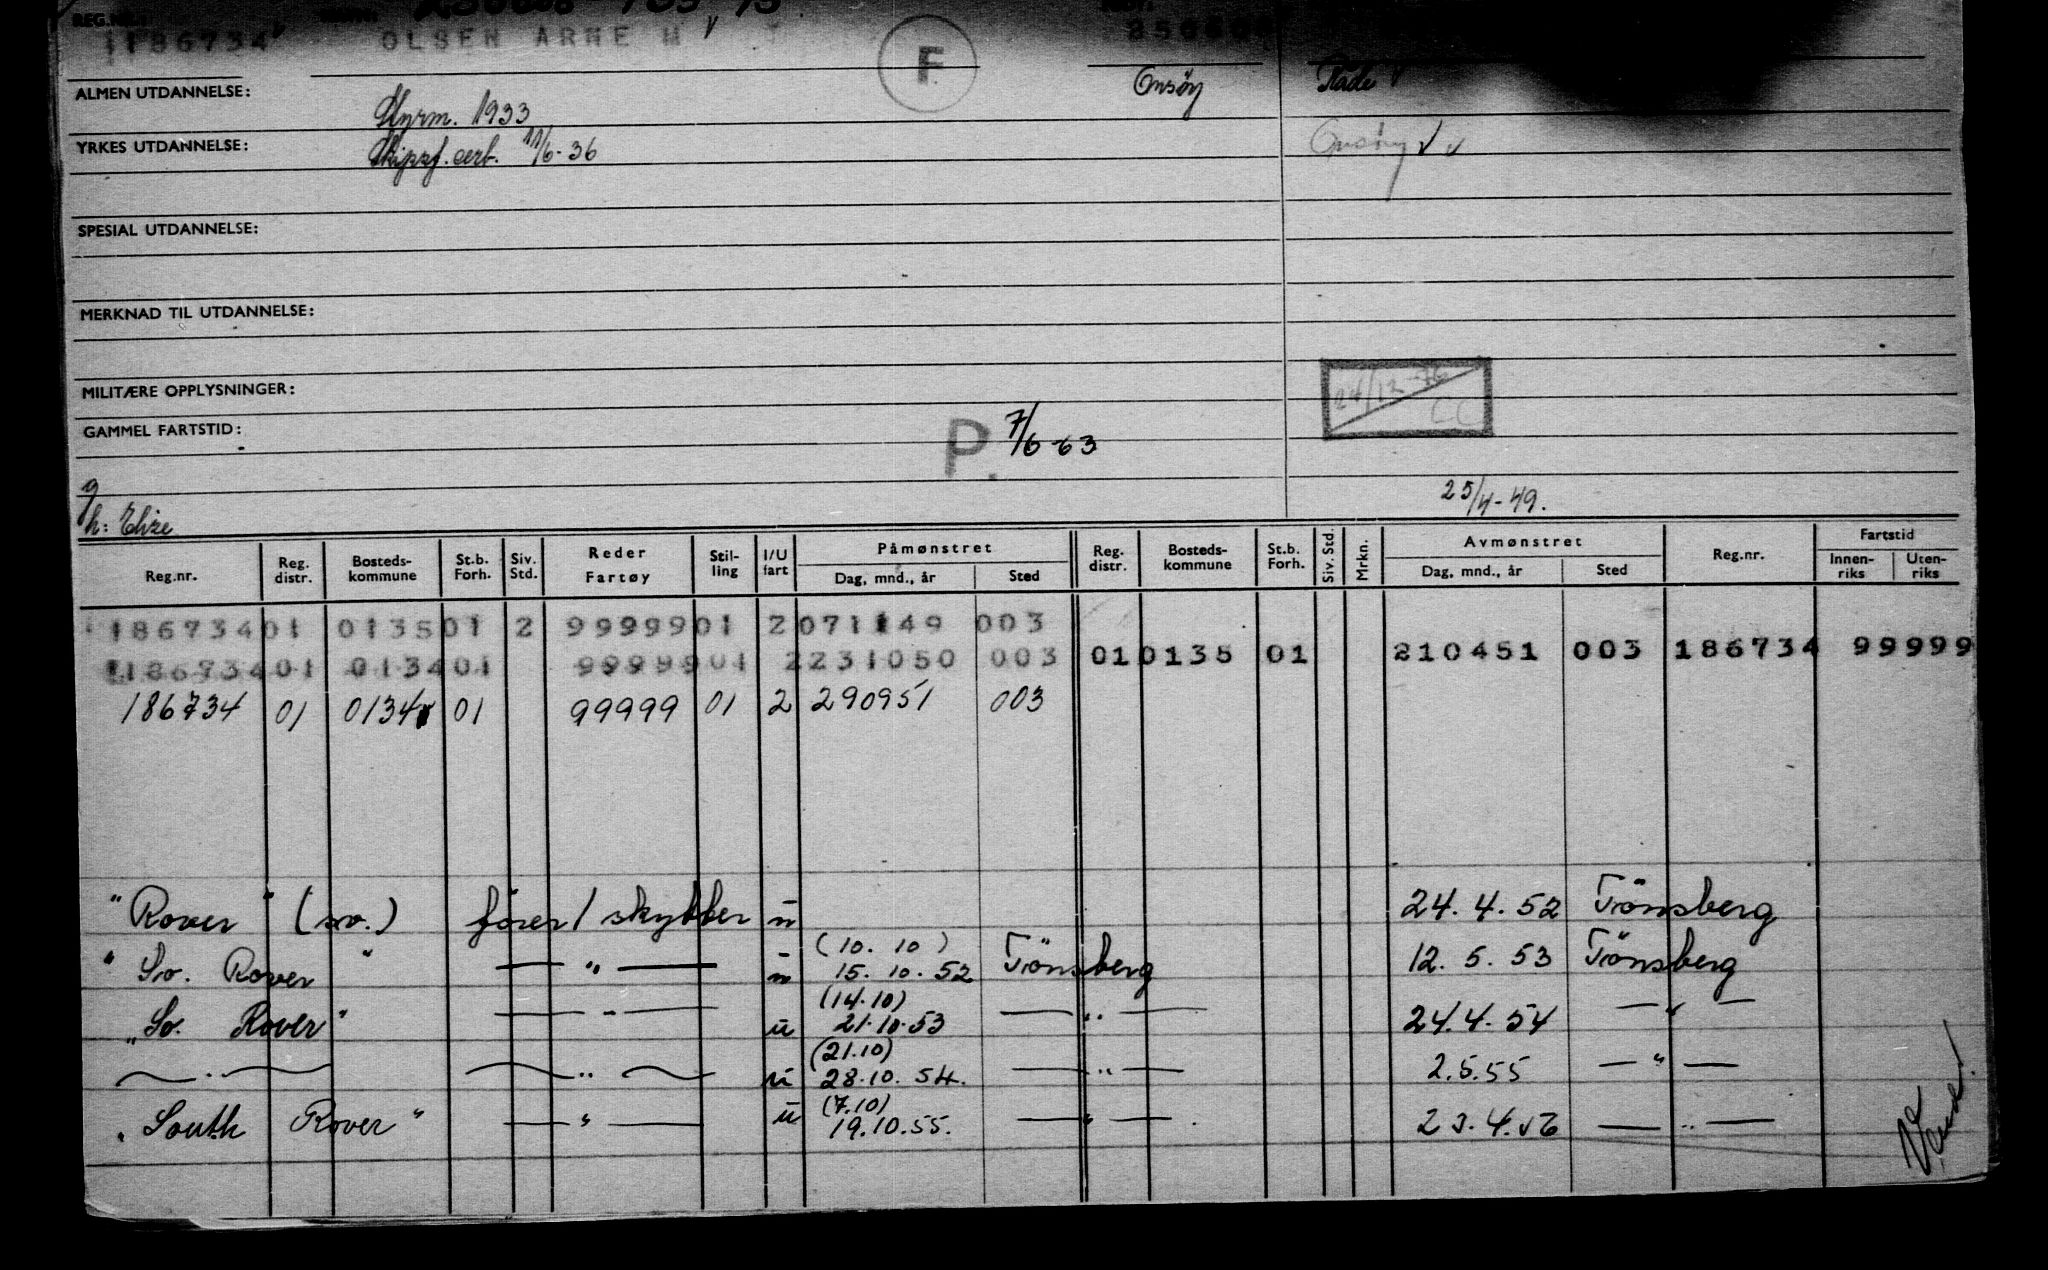 REG.NR.:
186734 OLSEN ARNE M F
ALMEN UTDANNELSE: Onsöy Råde
Styrm. 1933
YRKES UTDANNELSE: Skipsf. cert. 11/6-36 Onsöy
SPESIAL UTDANNELSE:
MERKNAD TIL UTDANNELSE:
MILITÆRE OPPLYSNINGER: 24/12-76
CC
GAMMEL FARTSTID: P. 7/6-63
25/4-49.
g/h: Elise
Reg.nr. Reg. distr. Bosteds-kommune St.b. Forh. Siv. Std. Reder Fartøy Stil-ling I/U fart Påmønstret Dag, mnd., år Sted Reg. distr. Bosteds-kommune St.b. Forh. Siv. Std. Mrkn. Avmønstret Dag, mnd., år Sted Reg.nr. Fartstid Innen-riks Uten-riks
186734 01 0135 01 2 99999 01 2 071149 003
186734 01 0134 01 99999 01 2 231050 003 01 0135 01 210451 003 186734 99999
186734 01 0134 01 99999 01 2 290951 003
"Rover" (sv.) förer/skytter u 24.4.52 Tönsberg
(10.10)
"Sv. Rover" — " — u 15.10.52 Tönsberg 12.5.53 Tönsberg
(14.10)
"Sv. Rover" — " — u 21.10.53 — " — 24.4.54 — " —
(21.10)
— " — — " — u 28.10.54. — " — 2.5.55 — " —
(7.10)
"South Rover" — " — u 19.10.55. — " — 23.4.56 — " —